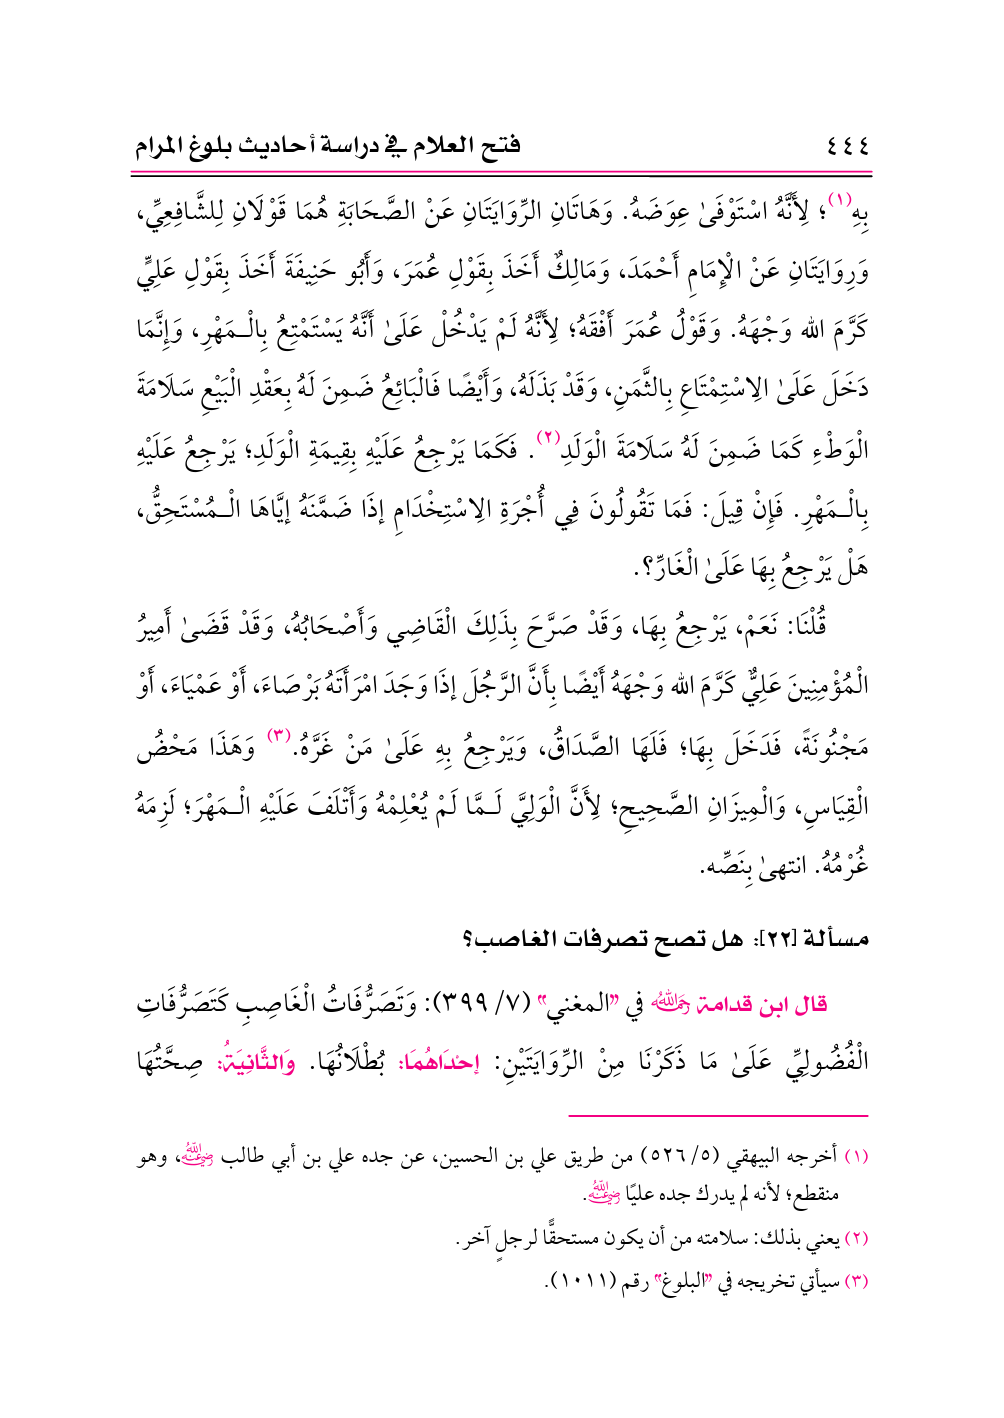 ٤٤٤ فتح العلام في دراسة أحاديث بلوغ المرام
بِهِ(١)؛ لِأَنَّهُ اسْتَوْفَىٰ عِوَضَهُ. وَهَاتَانِ الرِّوَايَتَانِ عَنْ الصَّحَابَةِ هُمَا قَوْلَانِ لِلشَّافِعِيِّ،
وَرِوَايَتَانِ عَنْ الْإِمَامِ أَحْمَدَ، وَمَالِكٌ أَخَذَ بِقَوْلِ عُمَرَ، وَأَبُو حَنِيفَةَ أَخَذَ بِقَوْلِ عَلِيٍّ
كَرَّمَ الله وَجْهَهُ. وَقَوْلُ عُمَرَ أَفْقَهُ؛ لِأَنَّهُ لَمْ يَدْخُلْ عَلَىٰ أَنَّهُ يَسْتَمْتِعُ بِالْـمَهْرِ، وَإِنَّمَا
دَخَلَ عَلَىٰ الِاسْتِمْتَاعِ بِالثَّمَنِ، وَقَدْ بَذَلَهُ، وَأَيْضًا فَالْبَائِعُ ضَمِنَ لَهُ بِعَقْدِ الْبَيْعِ سَلَامَةَ
الْوَطْءِ كَمَا ضَمِنَ لَهُ سَلَامَةَ الْوَلَدِ(٢). فَكَمَا يَرْجِعُ عَلَيْهِ بِقِيمَةِ الْوَلَدِ؛ يَرْجِعُ عَلَيْهِ
بِالْـمَهْرِ. فَإِنْ قِيلَ: فَمَا تَقُولُونَ فِي أُجْرَةِ الِاسْتِخْدَامِ إذَا ضَمَّنَهُ إيَّاهَا الْـمُسْتَحِقُّ،
هَلْ يَرْجِعُ بِهَا عَلَىٰ الْغَارِّ؟.
قُلْنَا: نَعَمْ، يَرْجِعُ بِهَا، وَقَدْ صَرَّحَ بِذَلِكَ الْقَاضِي وَأَصْحَابُهُ، وَقَدْ قَضَىٰ أَمِيرُ
الْمُؤْمِنِينَ عَلِيٌّ كَرَّمَ الله وَجْهَهُ أَيْضًا بِأَنَّ الرَّجُلَ إذَا وَجَدَ امْرَأَتَهُ بَرْصَاءَ، أَوْ عَمْيَاءَ، أَوْ
مَجْنُونَةً، فَدَخَلَ بِهَا؛ فَلَهَا الصَّدَاقُ، وَيَرْجِعُ بِهِ عَلَىٰ مَنْ غَرَّهُ.(٣) وَهَذَا مَحْضُ
الْقِيَاسِ، وَالْمِيزَانِ الصَّحِيحِ؛ لِأَنَّ الْوَلِيَّ لَـمَّا لَمْ يُعْلِمْهُ وَأَتْلَفَ عَلَيْهِ الْـمَهْرَ؛ لَزِمَهُ
غُرْمُهُ. انتهىٰ بِنَصِّه.
مسألة [٢٢]: هل تصح تصرفات الغاصب؟
قال ابن قدامة رحمه الله في "المغني" (٧/ ٣٩٩): وَتَصَرُّفَاتُ الْغَاصِبِ كَتَصَرُّفَاتِ
الْفُضُولِيِّ عَلَىٰ مَا ذَكَرْنَا مِنْ الرِّوَايَتَيْنِ: إحْدَاهُمَا: بُطْلَانُهَا. وَالثَّانِيَةُ: صِحَّتُهَا
(١) أخرجه البيهقي (٥/ ٥٢٦) من طريق علي بن الحسين، عن جده علي بن أبي طالب رضي الله عنه، وهو
منقطع؛ لأنه لم يدرك جده عليًا رضي الله عنه.
(٢) يعني بذلك: سلامته من أن يكون مستحقًّا لرجلٍ آخر.
(٣) سيأتي تخريجه في "البلوغ" رقم (١٠١١).